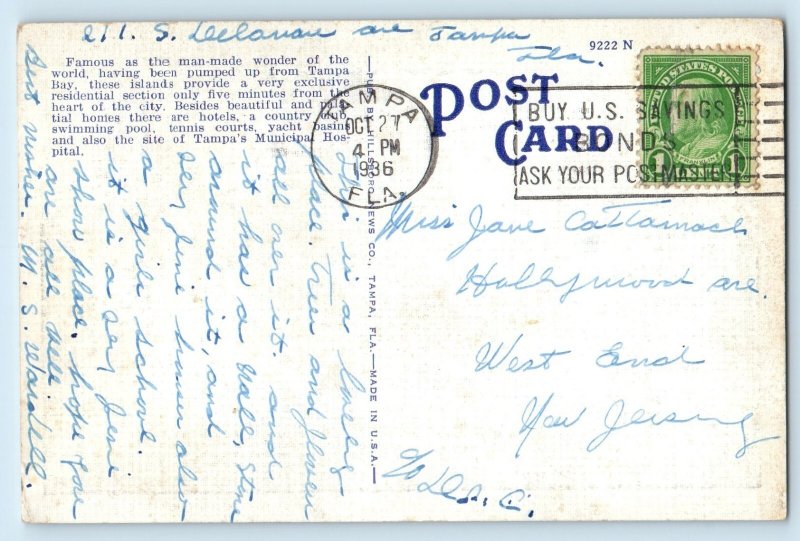 211. S. Delaware ave Tampa
Fla.
9222 N
Famous as the man-made wonder of the
world, having been pumped up from Tampa
Bay, these islands provide a very exclusive
residential section only five minutes from the
heart of the city. Besides beautiful and pala-
tial homes there are hotels, a country club,
swimming pool, tennis courts, yacht basin
and also the site of Tampa's Municipal Hos-
pital.
POST
CARD
TAMPA
OCT 27
4 PM
1936
FLA.
BUY U.S. SAVINGS
BONDS
ASK YOUR POSTMASTER
UNITED STATES POSTAGE
FRANKLIN
1 1
PUB. BY HILLSBORO NEWS CO., TAMPA, FLA.—MADE IN U.S.A.—
This is a lovely
place. Trees and flowers
all over it. and
it has a wall, stone
around it, and
very fine houses also
a girls school.
it is a very fine
show place. hope you
are all well
M. S. Wardell.
Miss Jane Cattamach
Hollywood ave.
West End
New Jersey